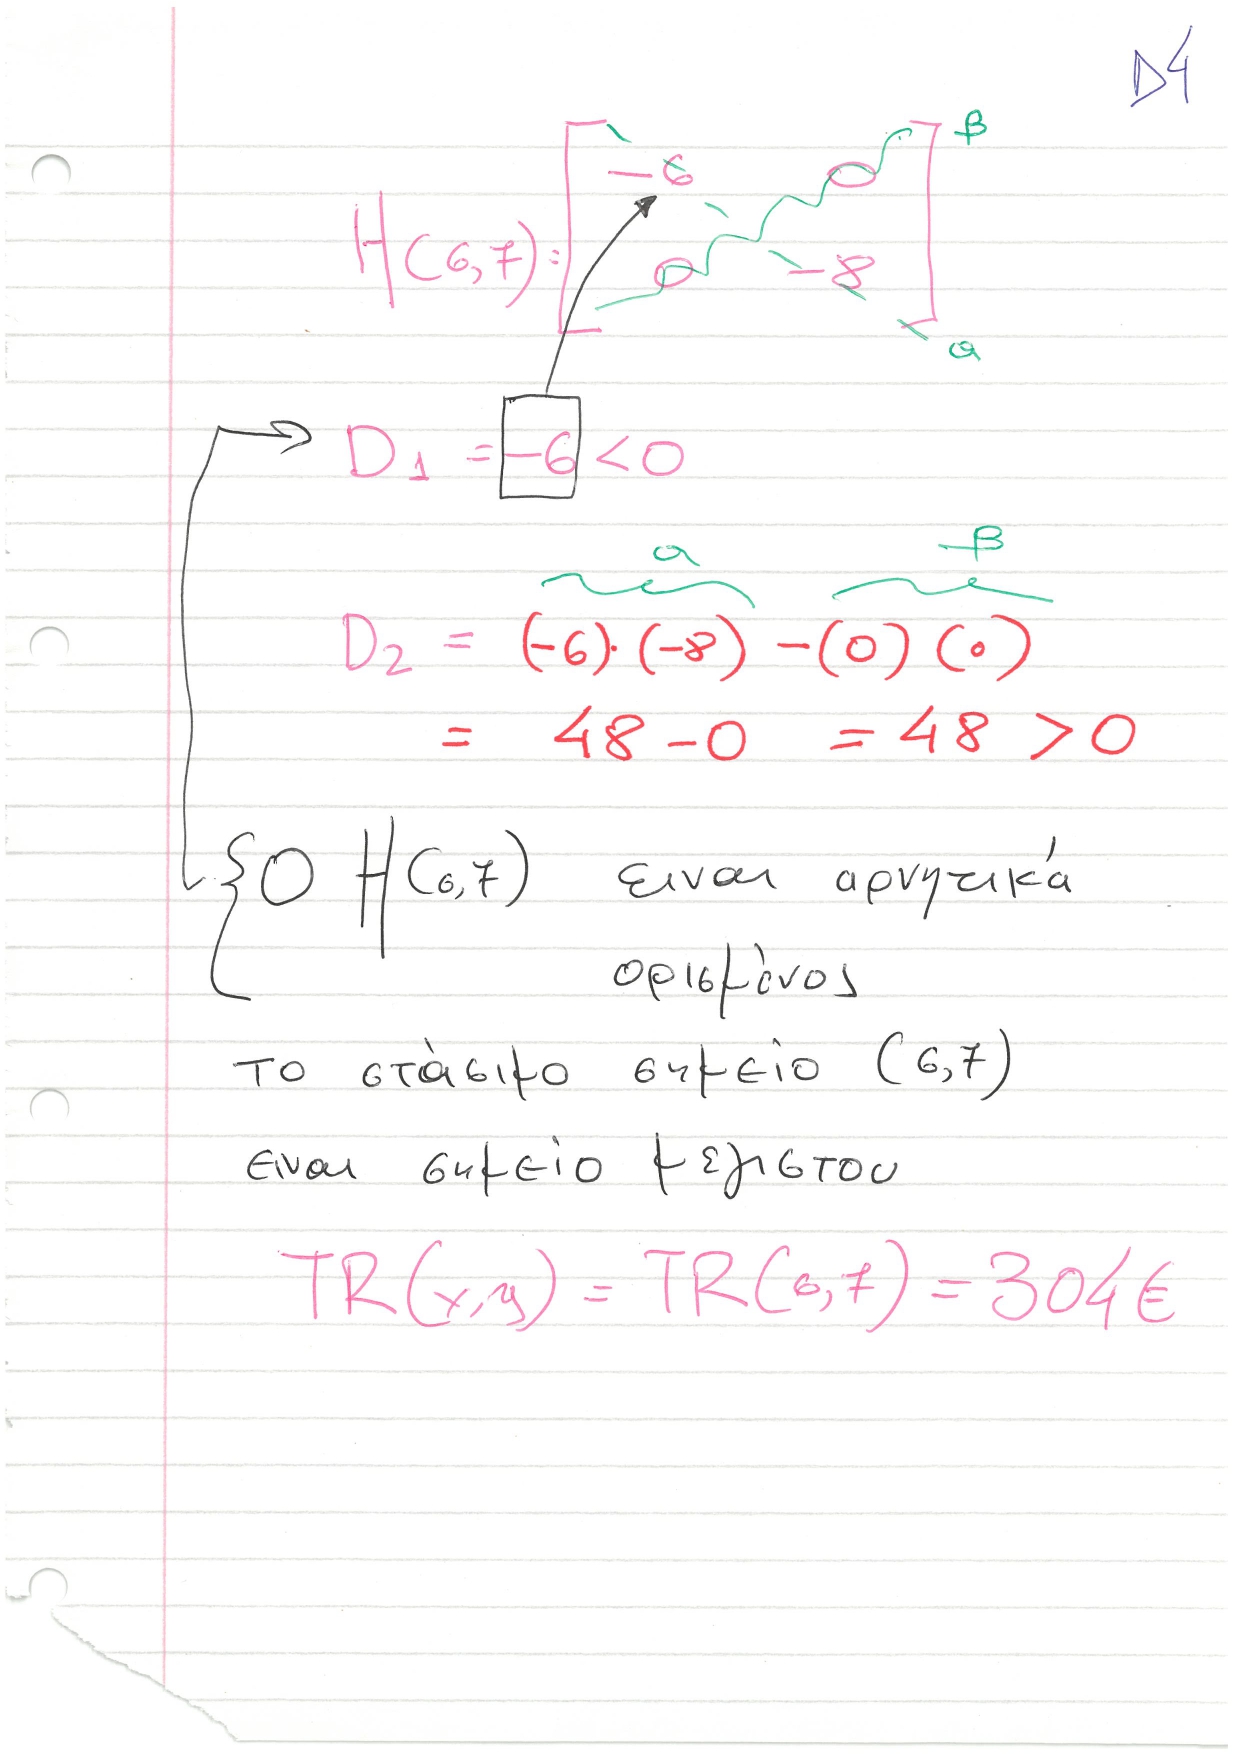 D4
β
-6 0
H(6,7) =
0 -8
α
D1 = -6 < 0
α β
D2 = (-6)·(-8) - (0) (0)
= 48 - 0 = 48 > 0
{ Ο H(6,7) ειναι αρνητικά
ορισμένος
το στάσιμο σημείο (6,7)
ειναι σημείο μεγιστου
TR(x,y) = TR(6,7) = 304€